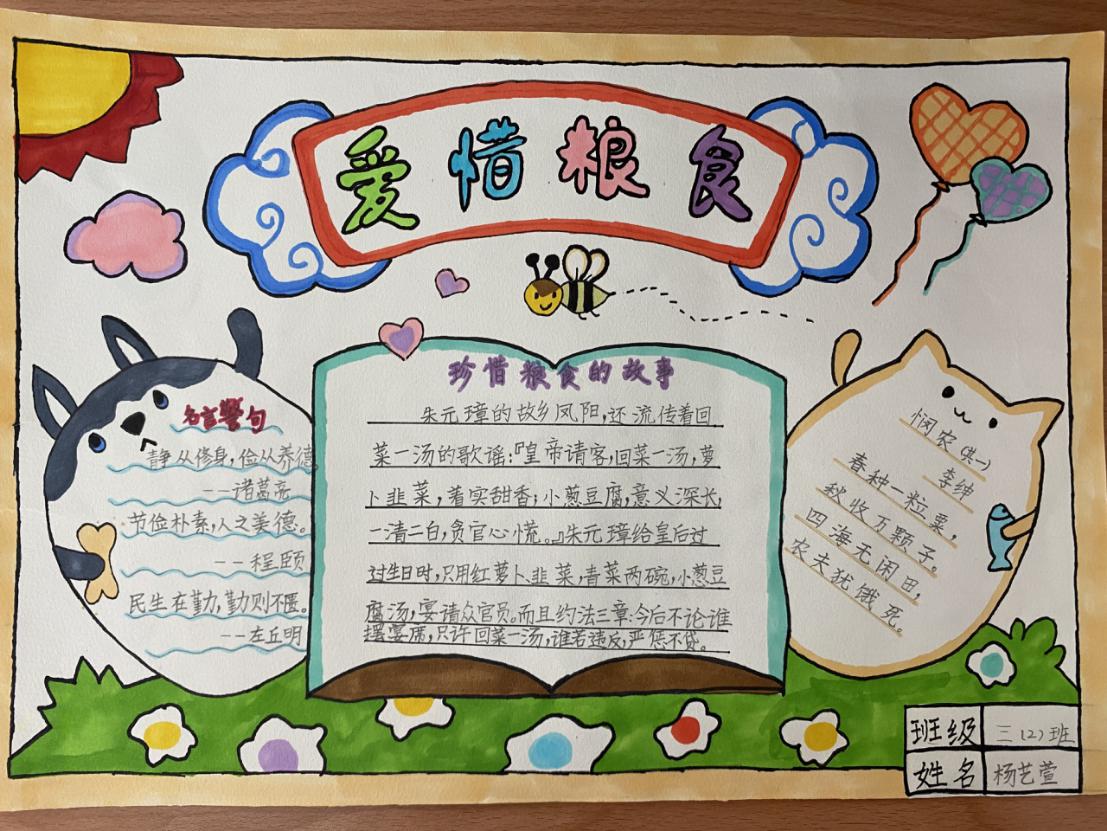 爱惜粮食
名言警句
静以修身,俭以养德
--诸葛亮
节俭朴素,人之美德。
--程颐
民生在勤,勤则不匮。
--左丘明
珍惜粮食的故事
朱元璋的故乡凤阳,还流传着回
菜一汤的歌谣:『皇帝请客,回菜一汤,萝
卜韭菜,着实甜香;小葱豆腐,意义深长,
一清二白,贪官心慌。』朱元璋给皇后过
过生日时,只用红萝卜、韭菜,青菜两碗,小葱豆
腐汤,宴请众官员。而且约法三章:今后不论谁
摆宴席,只许回菜一汤,谁若违反,严惩不贷。
悯农(其一)
李绅
春种一粒粟,
秋收万颗子。
四海无闲田,
农夫犹饿死。
班级 三(2)班
姓名 杨艺萱